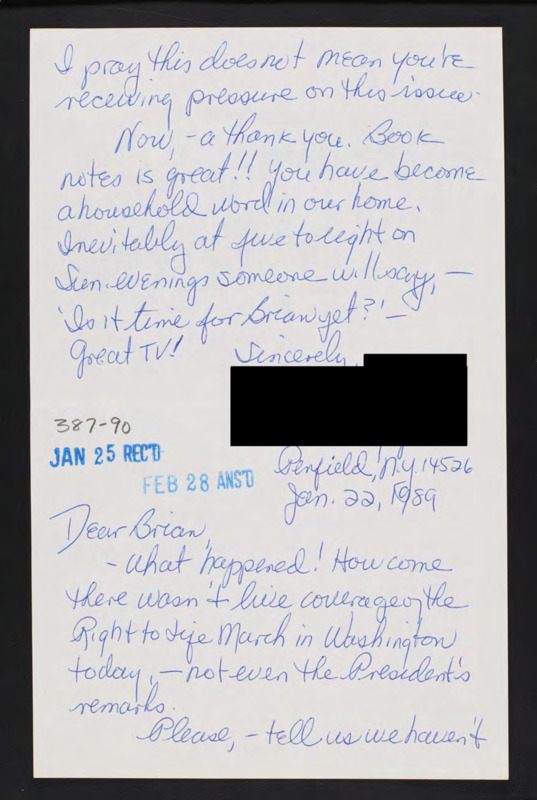 I pray this does not mean you're
receiving pressure on this issue.
Now, - a thank you. Book
notes is great!! You have become
a household word in our home.
Inevitably at five to eight on
Sun. evenings someone will say, —
'Is it time for Brian yet?' —
Great TV! Sincerely,
387-90
JAN 25 REC'D
FEB 28 ANS'D
Penfield, N.Y. 14526
Jan. 22, 1989
Dear Brian,
- What happened! How come
there wasn't live coverage of the
Right to Life March in Washington
today, — not even the President's
remarks.
Please, - tell us we haven't